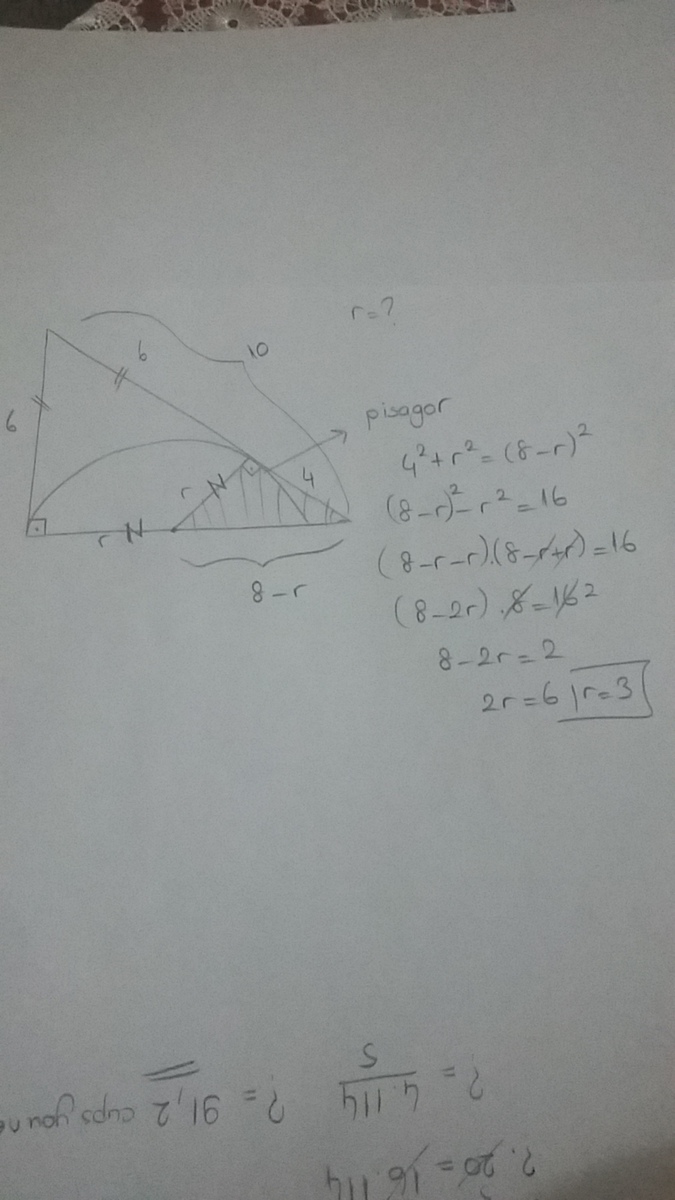 r=?
6
10
6
pisagor
4
r
r
8-r
4²+r²=(8-r)²
(8-r)²-r²=16
(8-r-r).(8-r+r)=16
(8-2r).8=16 2
8-2r=2
2r=6 r=3
?.20=16.114
?= 4.114/5 ?= 91,2 cups you